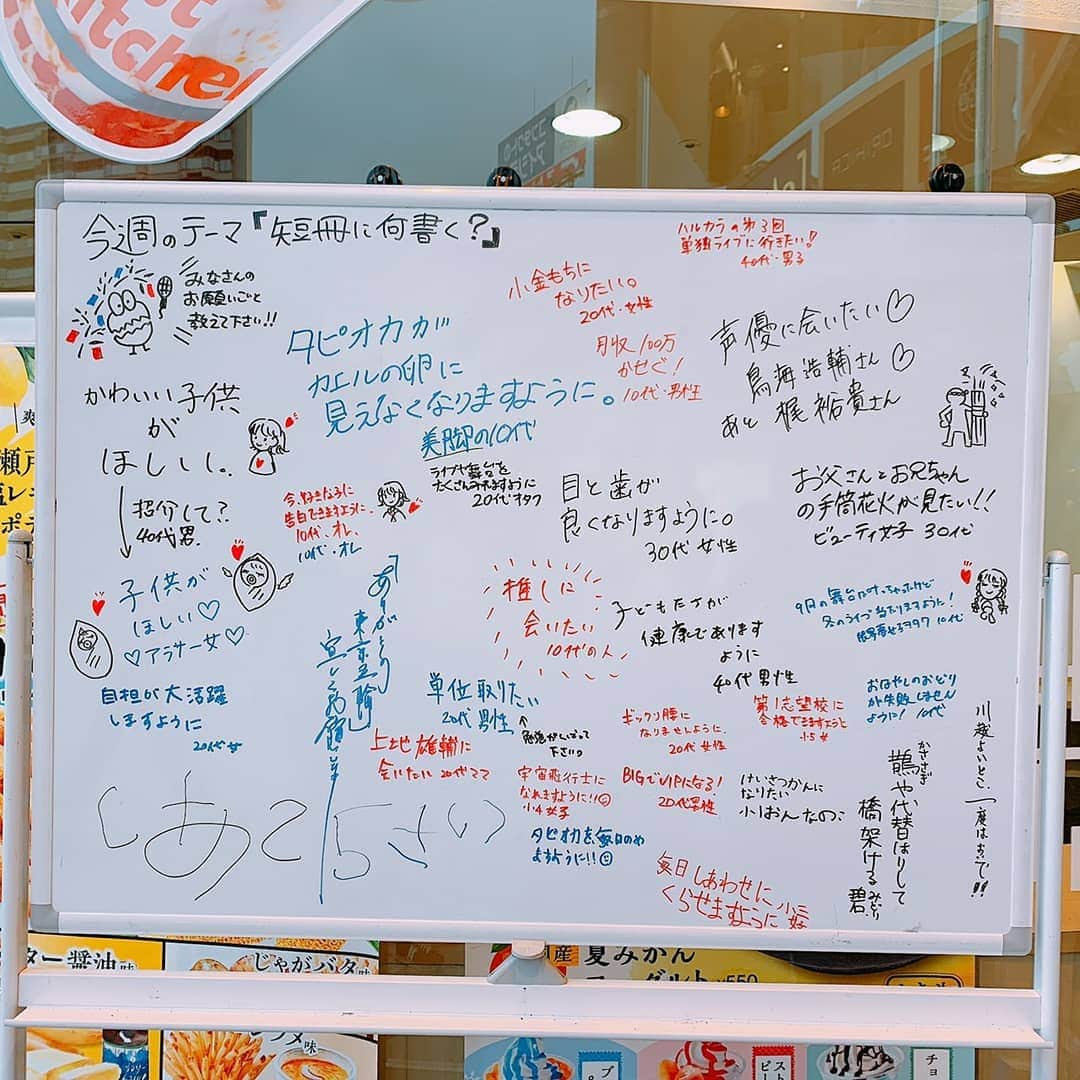 今週のテーマ『短冊に何書く?』
みなさんの
お願いごと
教えて下さい!!
ハルカラの第3回
単独ライブに行きたい!
40代・男子
小金もちに
なりたい。
20代・女性
タピオカが
カエルの卵に
見えなくなりますように。
美脚の10代
月収100万
かせぐ!
10代・男性
声優に会いたい♡
鳥海浩輔さん♡
あと 梶裕貴さん
かわいい子供
が
ほしいし。
紹介して?
40代男
今、好きな子に
告白できますように。
10代、オレ
10代・オレ
ライブや舞台を
たくさんみれますように
20代オタク
目と歯が
良くなりますように。
30代 女性
お父さんとお兄ちゃん
の手筒花火が見たい!!
ビューティ女子 30代
子供が
ほしい♡
♡アラサー女♡
ありがとう
東京五輪
推しに
会いたい
10代の人
子どもたちが
健康であります
ように
40代男性
冬のライブ当たりますように!
10代
自担が大活躍
しますように
20代女
単位取りたい
20代男性
勉強がんばって
下さい
上地雄輔に
会いたい 20代ママ
ギックリ腰に
なりませんように。
20代 女性
第1志望校に
合格できますように
小5女
おはやしのおどり
が失敗しません
ように! 10代
宇宙飛行士に
なれますように!!☺
小4女子
BIGでVIPになる!
20代男性
けいさつかんに
なりたい
小1おんなのこ
タピオカを毎日のめ
ますように!!☺
毎日しあわせに
くらせますように
小三女
かささぎ
鵲や代替はりして
橋架ける
みどり
碧
川越よいとこ、一度はおいで!!
Kitchen
じゃがバタ味
夏みかん